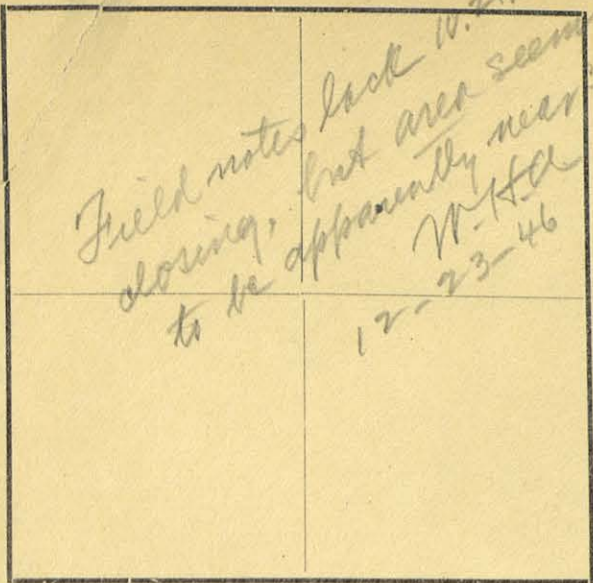 Field notes lack
closing, but area seem
to be apparently near
12-23-46